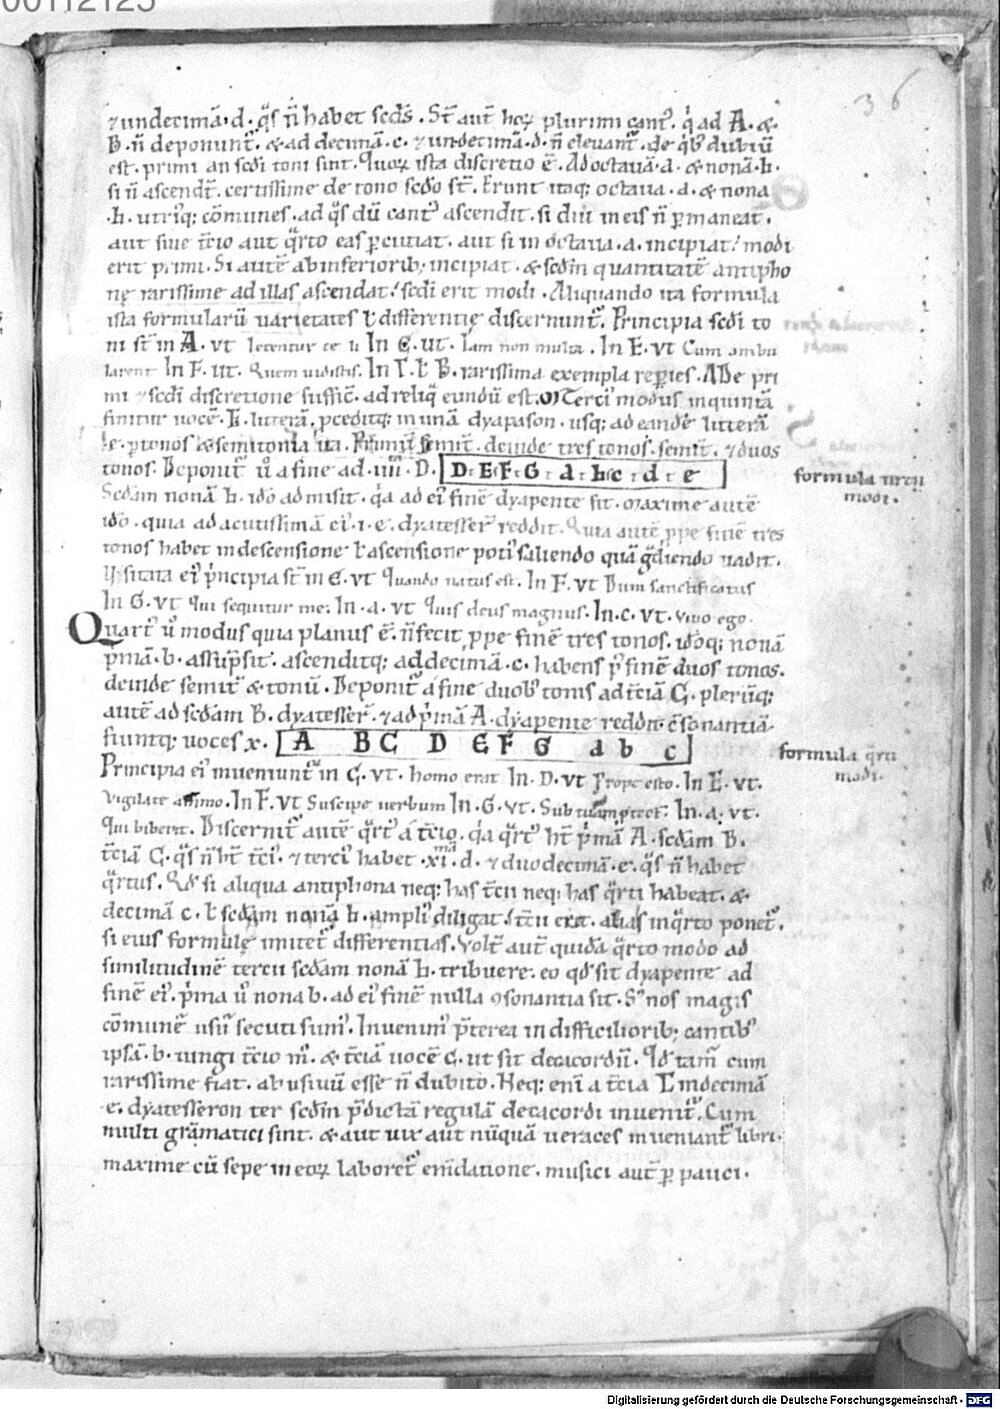 00112125
36
⁊ undecimā · d · q̄s n̄ habet scds̄ . St̄ aut̄ hoꝝ plurimi cant⁹ . q̇ ad A · &
B · n̄ deponunt᷑ . & ad decimā · c · ⁊ undecimā · d · n̄ elevant᷑ . de qⁱb⁹ dubiū
est · primi an scdi toni sint . Quoꝝ ista discretio ē . Ad octavā · a · & nonā · h ·
si n̄ ascendt̄ . certissime de tono scdo st̄ . Erunt itaq; octava · a · & nona
· h · utriq; cōmunes . ad q̄s dū cant⁹ ascendit . si diu in eis n̄ ꝑmaneat .
aut sine t̄cio aut q̄rto eas ꝑcutiat . aut si in octava · a · incipiat / modi
erit primi . Si autē ab inferiorib; incipiat · & scdm̄ quantitatē antipho
nę rarissime ad illas ascendat / scdi erit modi . Aliquando ita formula
ista formularū varietates ł differentię discernunt᷑ . Principia scdi to
ni st̄ in A · vt letentur ce li In C · ut · Iam non multa . In E · vt Cum ambu
larent In F · ut · Quem vidistis . In Γ · ł B · rarissima exempla reꝑies . A De pri
mi ⁊ scdi discretione suffic̄ . ad reliq̄ eundū est . Terci⁹ modus in quintā
finitur vocē · E · litterā . pceditq; in unā dyapason . usq; ad eandē litterā
· e · ꝑ tonos & semitonia ita . Primū semit̄ . deinde tres tonos . semit̄ . ⁊ duos
tonos . Deponit᷑ ū a fine ad · iiii · D · D · E · F · G · a · h · c · d · e
formula tercii
modi .
Scdam nonā h . idō admisit . q̇a ad ei⁹ finē dyapente sit . maxime autē
idō . quia ad acutissimā ei⁹ · i · e · dyatesser̄ reddit . Quia autē ꝓpe finē tres
tonos habet in descensione ł ascensione poti⁹ saliendo quā g̃diendo vadit .
Usitata ei⁹ p̃ncipia st̄ in E · vt Quando natus est . In F · vt Dum sanctificatus
In G · vt Qui sequitur me . In · a · vt Quis deus magnus . In . c . vt . vivo ego .
Quart⁹ ū modus quia planus ē . n̄ fecit ꝓpe finē tres tonos . idōq; nonā
p̃mā · b · assūpsit . ascenditq; ad decimā · c · habens p⁹ finē duos tonos .
deinde semit̄ & tonū . Deponit᷑ a fine duob⁹ tonis ad t̄ciā C · pleriq;
autē ad scdam B · dyatesser̄ . ⁊ ad p̃mā A · dyapente reddit ɔ̄sonantiā
fiuntq; voces x . A B C D E F G a b c
formula q̄rti
modi .
Principia ei⁹ inveniunt᷑ in C · vt · homo erat In . D · vt Prope esto . In E · vt .
Vigilate animo . In F · vt Suscipe verbum In . G · vt . Sub tuam protect̄ . In . a · vt .
Qui biberit . Discernit᷑ autē q̄rt⁹ a t̄cio . q̇a q̄rt⁹ ht̄ p̃mā A · scdam B ·
t̄ciā C · q̄s n̄ ht̄ t̄ci⁹ . ⁊ terci⁹ habet · xi · mā d · ⁊ duodecimā · e · q̄s n̄ habet
q̄rtus . Qd̄ si aliqua antiphona neq; has t̄cii neq; has q̄rti habeat . &
decimā c · ł scdam nonā h · ampli⁹ diligat / t̄cii erit . alias in q̄rto ponet᷑ .
si eius formulę imitet᷑ differentias . Volt̄ aut̄ quidā q̄rto modo ad
similitudinē tercii scdam nonā h · tribuere . eo qd̄ sit dyapente ad
finē ei⁹ . p̃ma ū nona b · ad ei⁹ finē nulla ɔsonantia sit . S; nos magis
cōmunē usū secuti sum⁹ . Invenim⁹ p̃terea in difficilioribȝ cantib⁹
ipsā · b · iungi t̄cio m̄ . & t̄ciā vocē C · ut sit decacordū . Qd̄ tam̄ cum
rarissime fiat . abusivū esse n̄ dubito . Neq; eni a t̄cia C in decimā
· e · dyatesseron ter scdm̄ p̃dictā regulā decacordi invenit᷑ . Cum
multi grāmatici sint . & aut vix aut nūquā veraces inveniant᷑ libri .
maxime cū sepe in eoꝝ laboret᷑ em̄datione . musici aut̄ ꝑ pauci .
Digitalisierung gefördert durch die Deutsche Forschungsgemeinschaft · DFG